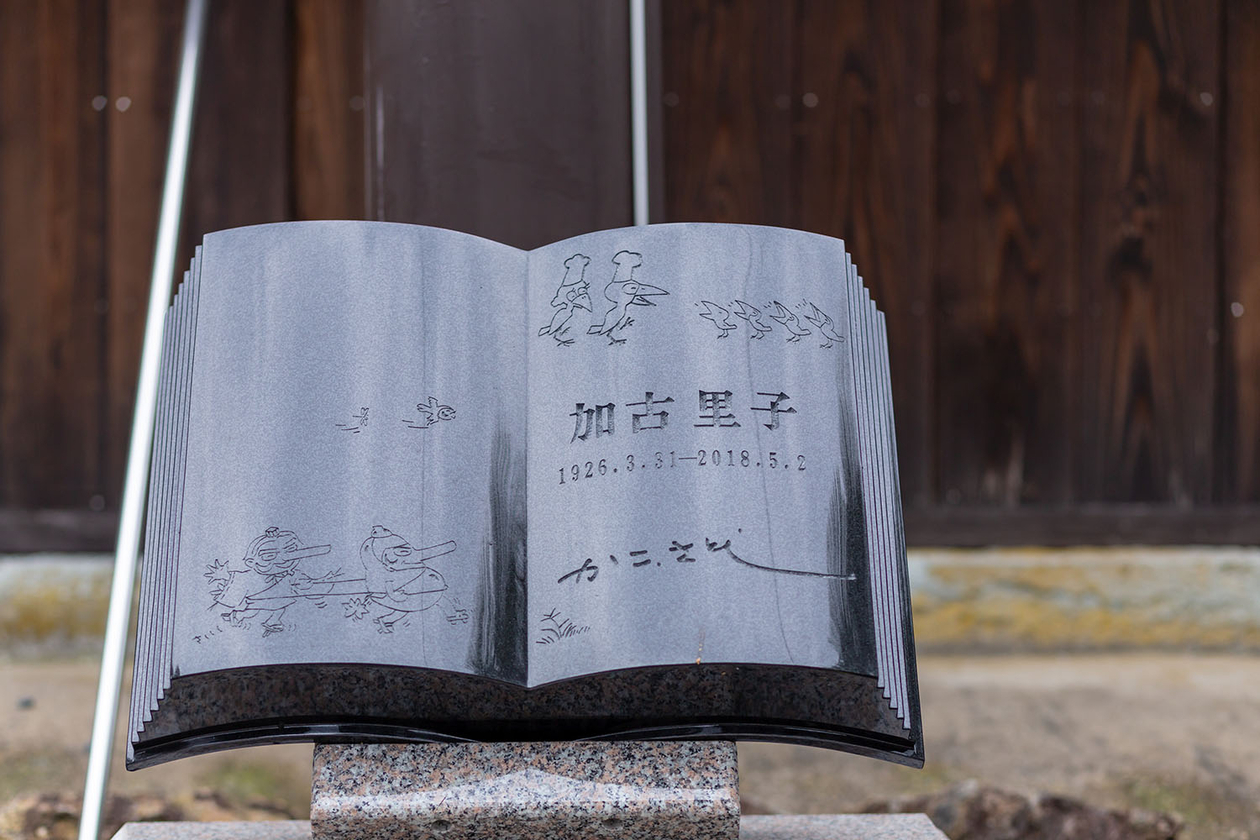 加古里子
1926.3.31—2018.5.2
かこ.さとし